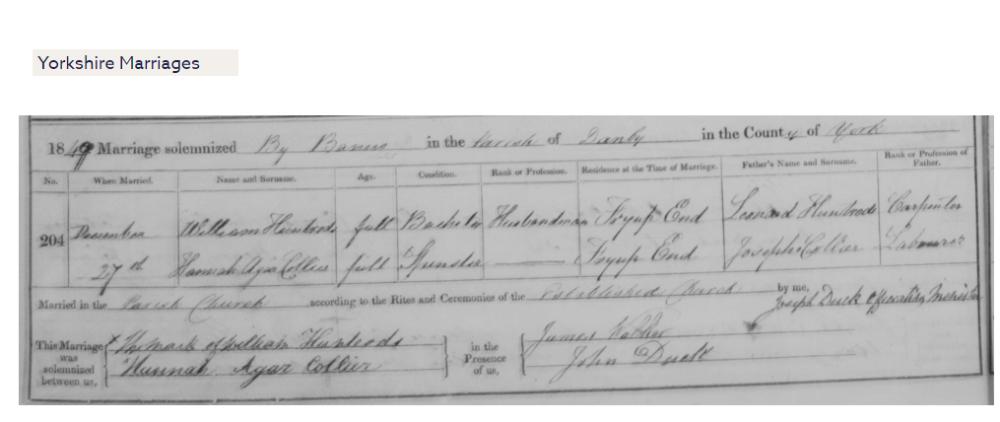 Yorkshire Marriages
1849 Marriage solemnized By Banns in the Parish of Danby in the County of York
No. When Married. Name and Surname. Age. Condition. Rank or Profession. Residence at the Time of Marriage. Father's Name and Surname. Rank or Profession of Father.
204 December William Huntrods full Bachelor Husbandman Fryup End Leonard Huntrods Carpenter
27th Hannah Agar Collier full Spinster Fryup End Joseph Collier Labourer
Married in the Parish Church according to the Rites and Ceremonies of the Established Church by me, Joseph Duck Officiating Minister
This Marriage was solemnized between us, X The mark of William Huntrods in the Presence of us, James
Hannah Agar Collier John Duck